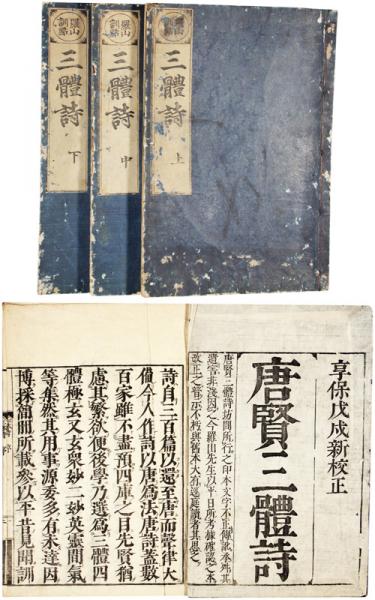 羅山
訓點
三體詩
上
羅山
訓點
三體詩
中
羅山
訓點
三體詩
下
享保戊戌新校正
唐賢三體詩
唐賢三體詩坊間所行之印本文字不正傳訛承舛其
遺害非淺因之今羅山先生以平日所考據確認之本
改正之不朽與舊本大有逕庭讀者其思之
詩自三百篇以還至唐而聲律大
備今人作詩以唐為法唐詩蓋數
百家雖不盡預四庫之目先賢猶
慮其繁欲便後學乃選為三體四
體極玄又玄衆妙二妙英靈間氣
等集然其用事源委多有未達因
博採聞所載參以平昔見聞訓